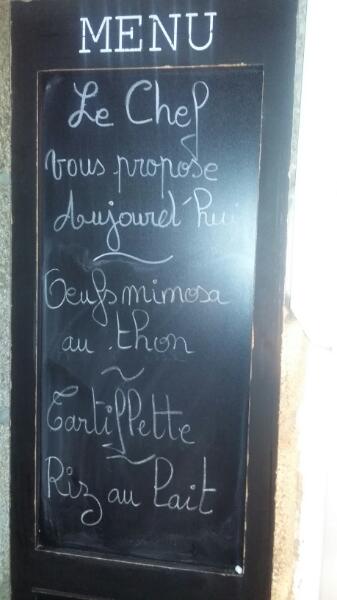 MENU
Le Chef
vous propose
Aujourd'hui
Oeufs mimosa
au thon
Tartiflette
Riz au lait